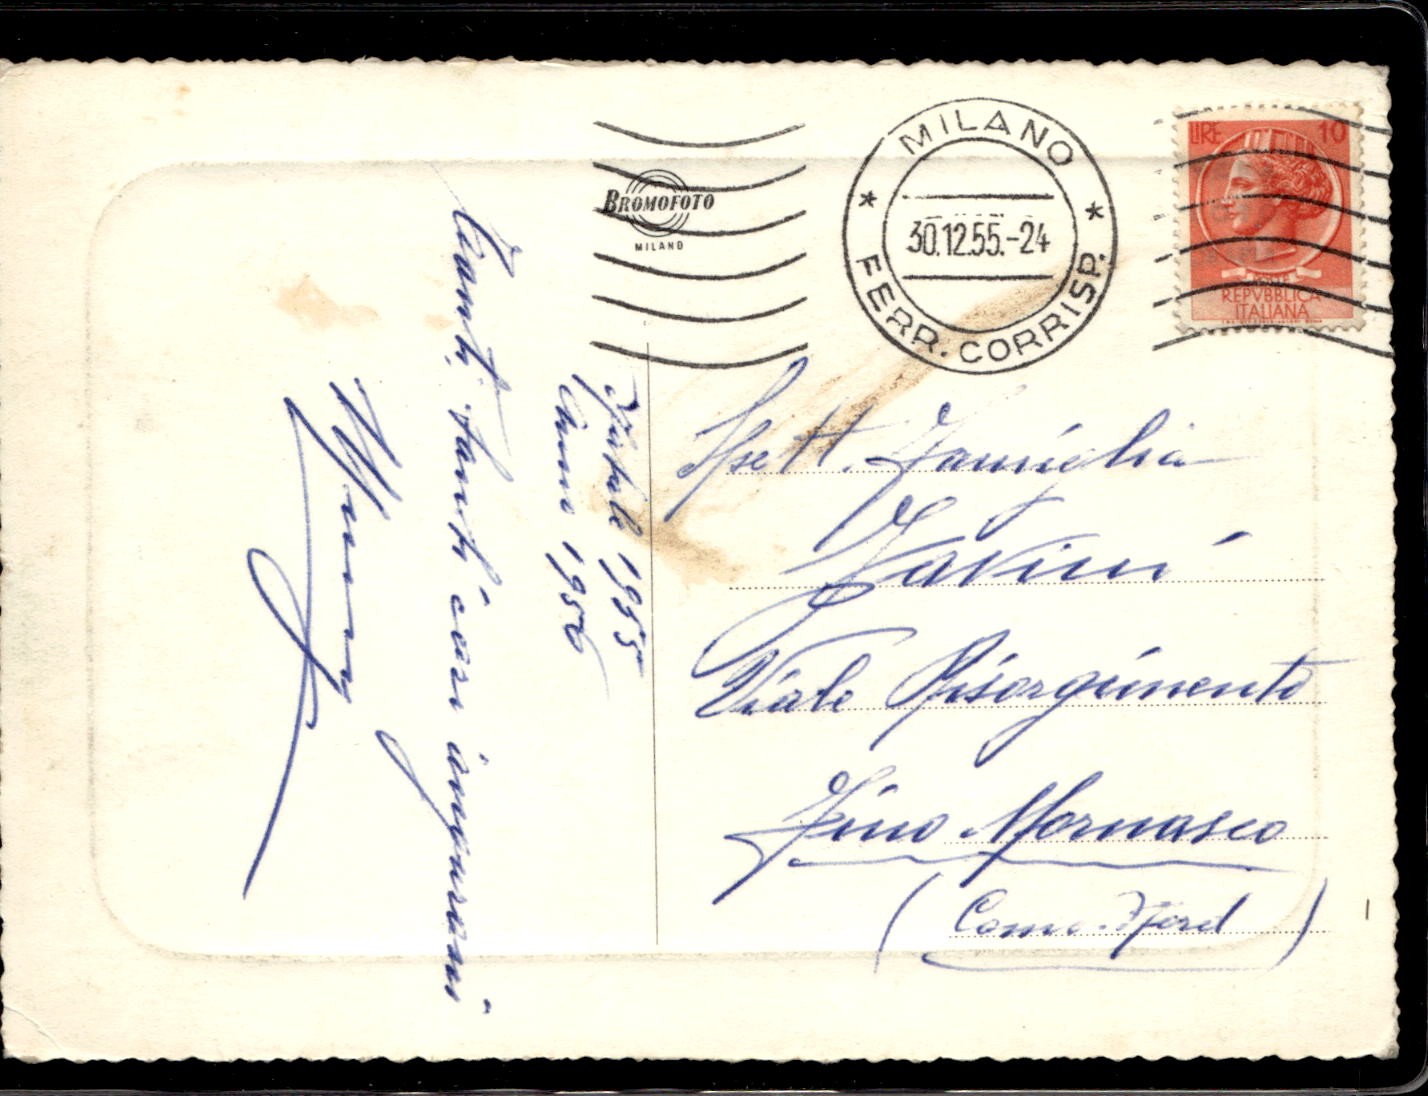 BROMOFOTO
MILANO
MILANO
30.12.55.-24
FERR. CORRISP.
LIRE 10
POSTE
REPVBBLICA
ITALIANA
Natale 1955
Anno 1956
Tanti, tanti cari auguroni
Spett. Famiglia
Viale Risorgimento
Fino Mornasco
(Como